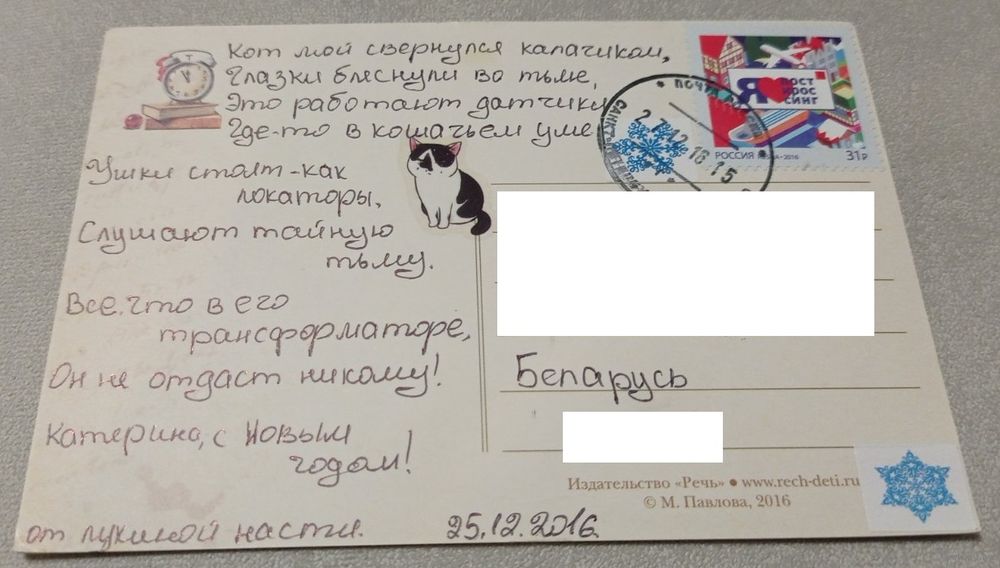 Кот мой свернулся калачиком,
Глазки блеснули во тьме,
Это работают датчики
Где-то в кошачьем уме
Ушки стоят - как
локаторы,
Слушают тайную
тьму.
Все, что в его
трансформаторе,
Он не отдаст никому!
Катерина, с Новым
годом!
от Лукиной Насти.
25.12.2016.
Я
пост
кросс
синг
РОССИЯ ROSSIA • 2016
31р
ПОЧТА
САНКТ
27 12 16 15
Беларусь
Издательство «Речь» • www.rech-deti.ru
© М. Павлова, 2016